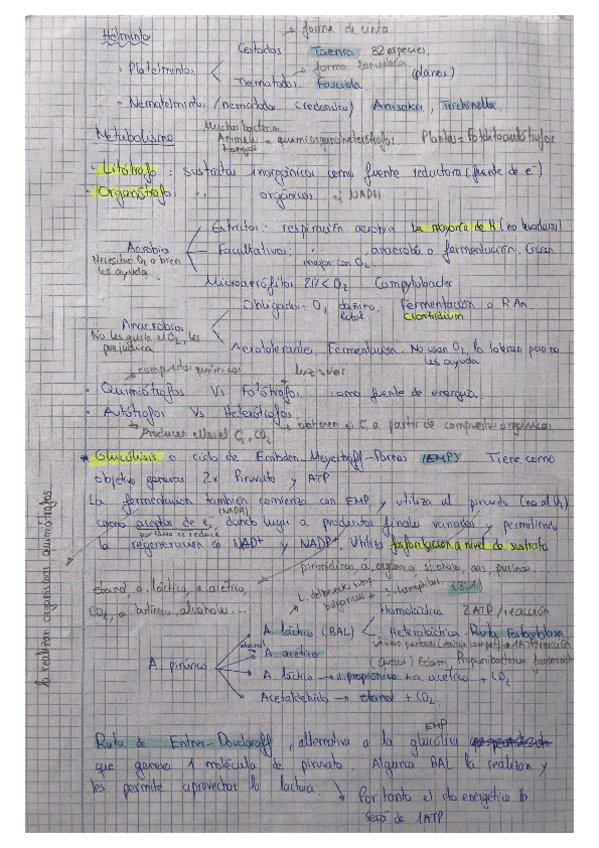 Helminto
→ forma de cinta
Cestodos Taenia 32 especies.
· Platelmintos < (planos)
→ forma lanceolada
Trematodos Fasciola
· Nematelmintos / nematodos (redondos) Anisakis, Trichinella.
Metabolismo Muchas bacterias Animales Hongos = quimiorganoheterótrofos. Plantas = Fotolitoautótrofos
· Litótrofo : sustratos inorgánicos como fuente reductora (fuente de e-)
· Organótrofo : '' orgánicos ej NADH
Estrictos : respiración aerobia La mayoría de H (no levaduras)
Aerobios Facultativos : '' , anaerobia o fermentación. Crecen mejor con O2
Necesitan O2 o bien les ayuda.
Microaerófilos 2% < O2 Campylobacter
Obligados : O2 dañino, letal Fermentación o R An. Clostridium
Anaerobios
No les gusta el O2, les perjudica
Aerotolerantes. Fermentación. No usan O2, lo toleran pero no les ayuda
→ compuestos químicos → luz solar
· Quimiótrofos Vs Fotótrofos : como fuente de energía.
· Autótrofos Vs Heterótrofos :
→ Producen ellos el C, CO2 → obtienen el C a partir de compuestos orgánicos
* Glucólisis o ciclo de Embden-Meyerhoff-Parnas (EMP) Tiene como
objetivo generar 2x Piruvato y ATP
La fermentación también comienza con EMP y utiliza al piruvato (no al O2)
como aceptor de e-, dando lugar a productos finales variados y permitiendo
(NADH)
por tanto se reduce
la regeneración de NAD+ y NADP+. Utiliza fosforilación a nivel de sustrato
pirimidinas, a. orgánicos, purinas...
etanol, a. láctico, a. acético,
CO2, a. butírico, alcoholes...
lo realizan organismos quimiótrofos
L. delbrueckii subs bulgaricus + S. termophilus.
Homoláctica 2 ATP/reacción
A. láctico (BAL) < Heteroláctica - Ruta Fosfoquetolasa
A. acético
A. pirúvico
(queso) Edam, Propionibacterium freudenreichii
A. láctico → a. propiónico + a. acético + CO2
Acetaldehído → etanol + CO2
Ruta de Entner-Doudoroff, alternativa a la glucólisis
EMP
que genera 1 molécula de piruvato. Algunas BAL la realizan y
les permite aprovechar la lactosa. ↳ Por tanto el rto energético
será de 1ATP